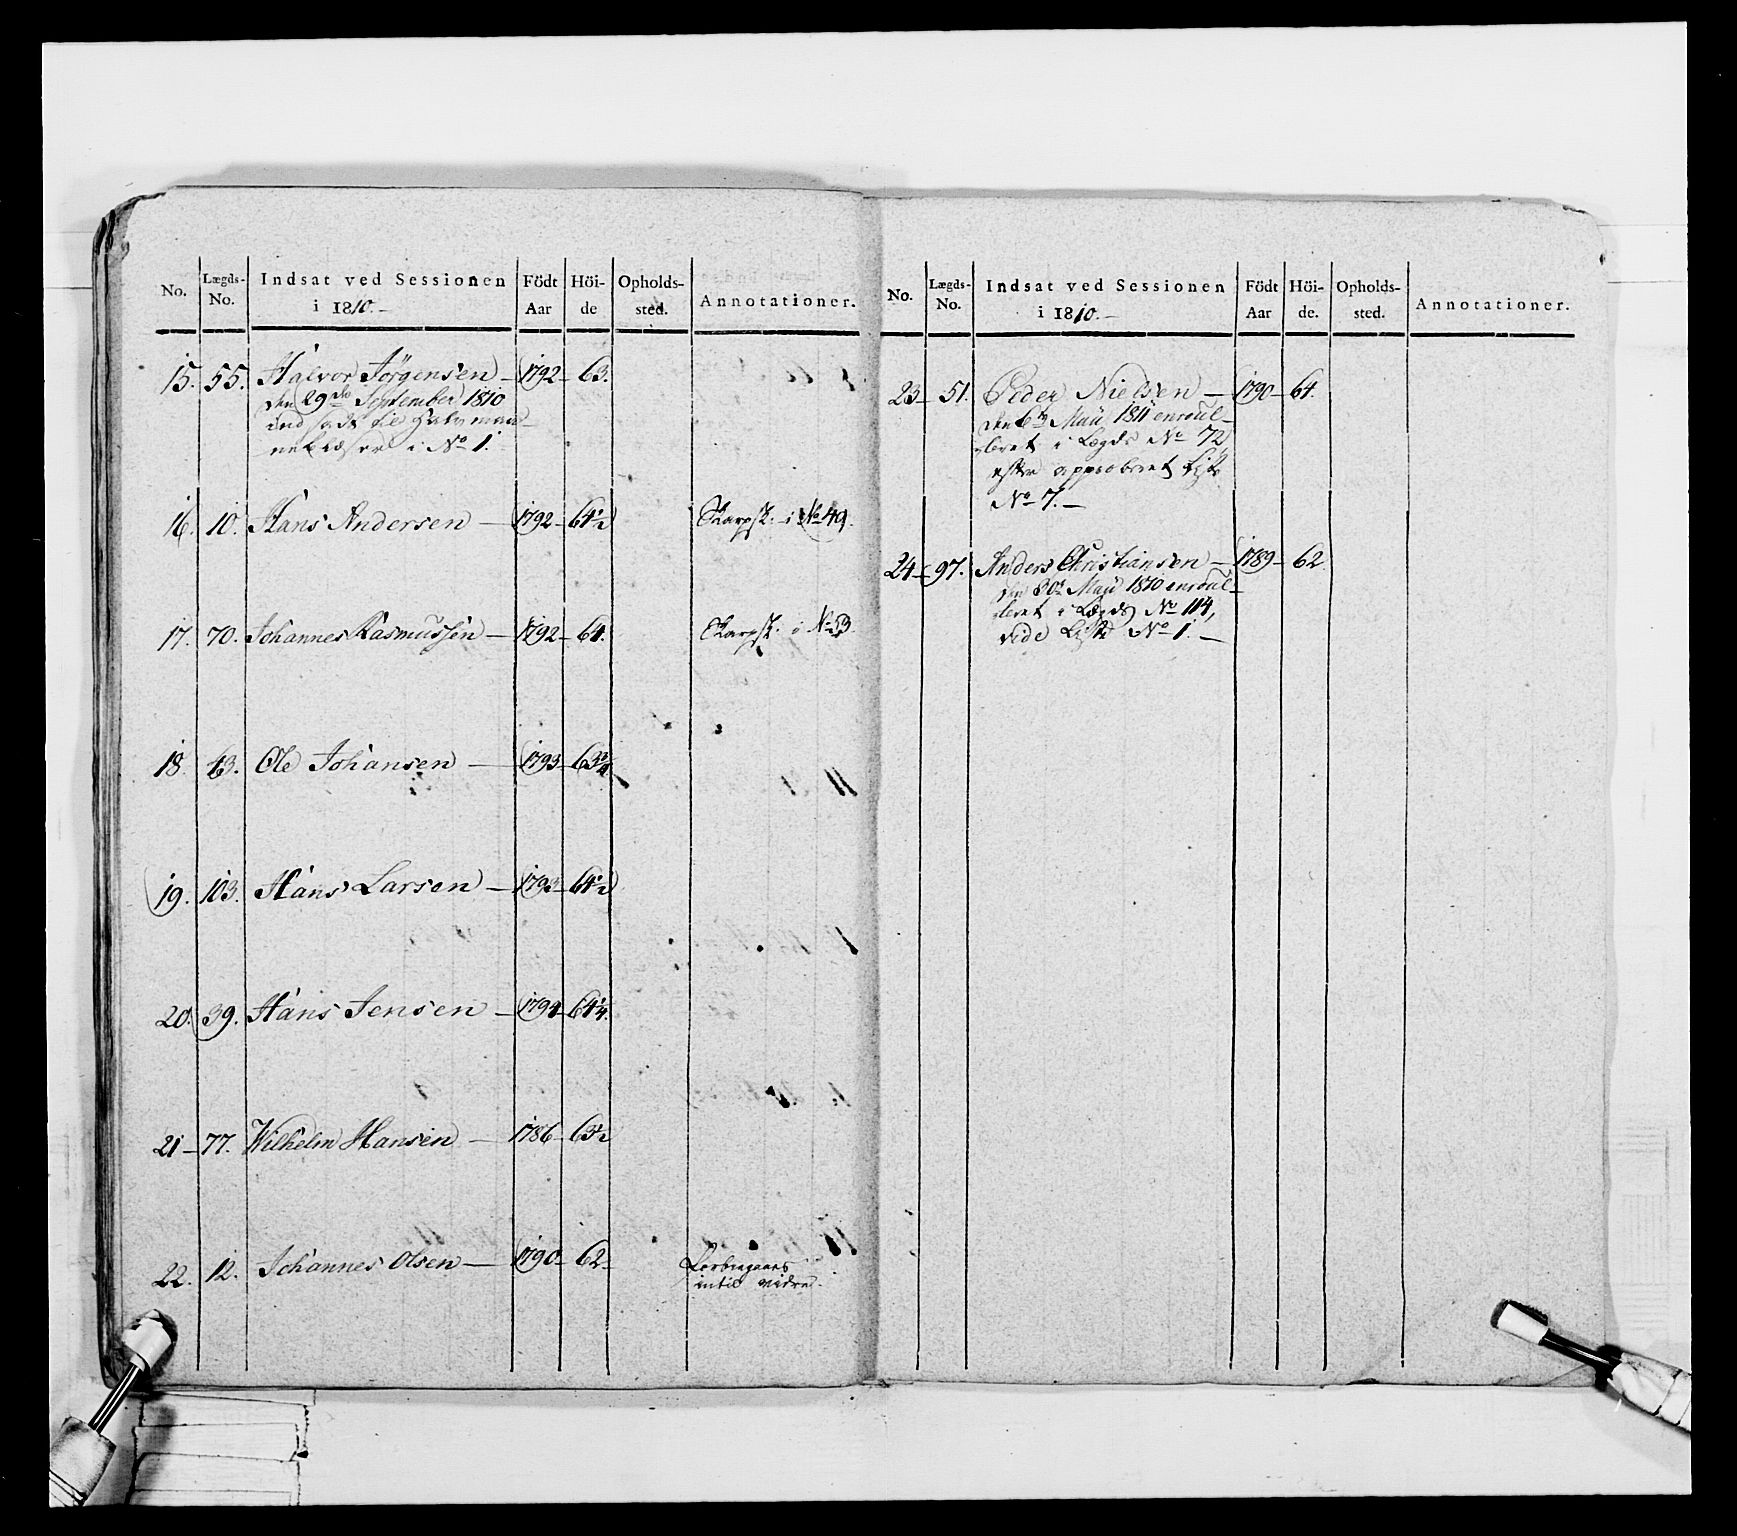 No. Lægds-No. Indsat ved Sessionen i 1810.- Födt Aar Höi-de Opholds-sted. Annotationer.
15. 55. Halvor Jörgensen - 1792 - 63.
den 29de September 1810
indsadt til Halvman-
neblæser i No 1.
16. 10. Hans Andersen - 1792 - 64 1/2 Skarpsk. i No 49.
17. 70. Johannes Rasmussen - 1792 - 64. Skarpsk. i No 53.
18. 43. Ole Johansen - 1793 - 63 3/4
19. 103. Hans Larsen - 1793 - 64 1/2
20. 39. Hans Jensen - 1794 - 64 1/4.
21 - 77. Wilhelm Hansen - 1786 - 63 1/2
22. 12. Johannes Olsen - 1790 - 62 - Forbigaaes
intil vidre.
No. Lægds-No. Indsat ved Sessionen i 1810.- Födt Aar Höi-de. Opholds-sted. Annotationer.
23 - 51. Peder Nielsen - 1790 - 64.
den 6te Maÿ 1811 enroul-
leret i Lægds No 72
efter approberet Liste
No 7. -
24 - 97. Anders Christiansen - 1789 - 62.
den 30te Maÿ 1810 enroul-
leret i Lægds No 114,
vide Liste No 1. -